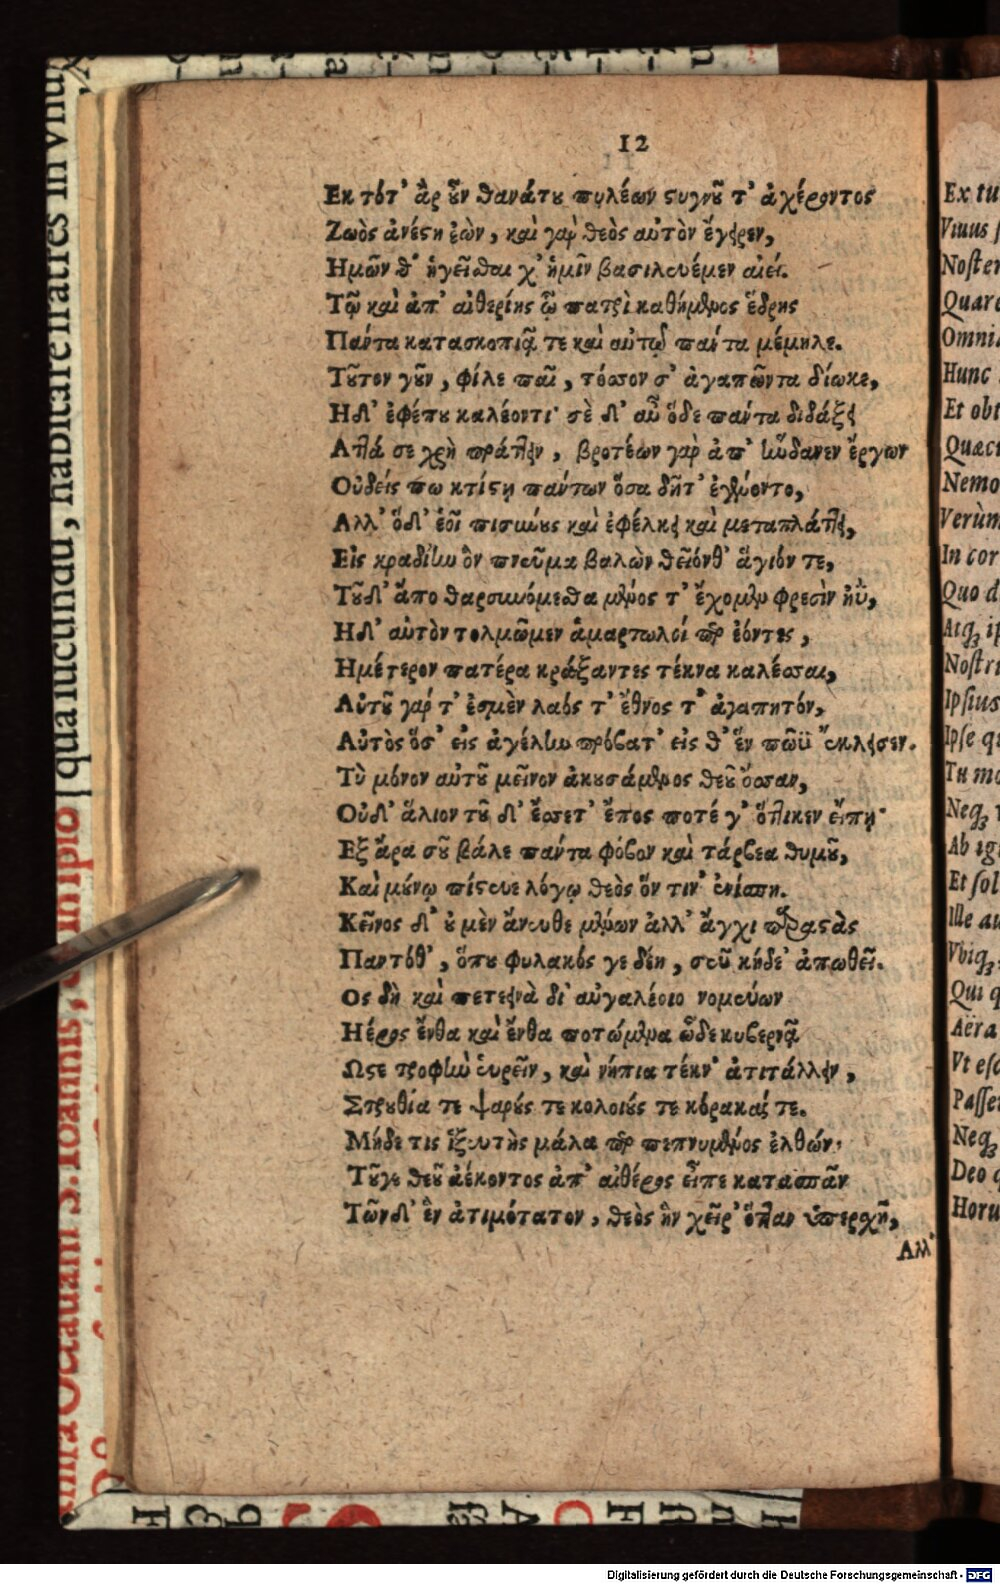 12
Εκ τότ' ἂρ ὖν θανάτου πυλέων στυγνοῦ τ' ἀχέροντος
Ζωὸς ἀνέστη ἐὼν, καὶ γὰρ θεὸς αὐτὸν ἔγειρεν,
Ημῶν θ' ἡγεῖσθαι χ' ἡμῖν βασιλευέμεν αἰεί.
Τῷ καὶ ἀπ' αἰθερίης ᾧ πατρὶ καθήμενος ἕδρης
Πάντα κατασκοπιᾷ τε καὶ αὐτῷ πάντα μέμηλε.
Τοῦτον γοῦν, φίλε παῖ, τόσσον σ' ἀγαπῶντα δίωκε,
Ηδ' ἐφέπου καλέοντι· σὲ δ' αὖ ὅδε πάντα διδάξει
Αττά σε χρὴ πράττειν, βροτέων γὰρ ἀπ' ηὕδανεν ἔργων
Οὐδείς πω κτίστῃ πάντων ὅσα δῆτ' ἐγένοντο,
Αλλ' ὅδ' ἑοῖ πισύνους καὶ ἐφέλκει καὶ μεταπλάττει,
Εἰς κραδίην ὃν πνεῦμα βαλὼν θεῖόνθ' ἅγιόν τε,
Τοῦδ' ἄπο θαρσυνόμεσθα μένος τ' ἔχομεν φρεσὶν ἠΰ,
Ηδ' αὐτὸν τολμῶμεν ἁμαρτωλοί περ ἐόντες,
Ημέτερον πατέρα κράξαντες τέκνα καλέσσαι,
Αὐτοῦ γάρ τ' ἐσμὲν λαός τ' ἔθνος τ' ἀγαπητόν,
Αὐτὸς ὅσ' εἰς ἀγέλην πρόβατ' εἰς θ' ἓν πῶϋ ἔκλησεν.
Τὺ μόνον αὐτοῦ μεῖνον ἀκουσάμενος θεοῦ ὄσσαν,
Οὐδ' ἅλιον τοῦ δ' ἔσσετ' ἔπος ποτέ γ' ὅττικεν εἴπῃ·
Εξ ἄρα σοῦ βάλε πάντα φόβον καὶ τάρβεα θυμοῦ,
Καὶ μούνῳ πίστευε λόγῳ θεὸς ὅν τιν' ἐνίσπῃ.
Κεῖνος δ' οὐ μὲν ἄνευθε μένων ἀλλ' ἄγχι παραστὰς
Παντόθ', ὅπου φυλακός γε δέῃ, σεῦ κήδε' ἀπωθεῖ.
Ος δὴ καὶ πετεεινὰ δι' αὐγαλέοιο νομεύων
Ηέρος ἔνθα καὶ ἔνθα ποτώμενα ὧδε κυβερνᾷ
Ωςτε τροφὴν εὑρεῖν, καὶ νήπια τέκν' ἀτιτάλλειν,
Στρουθία τε ψαρούς τε κολοιούς τε κόρακάς τε.
Μήδε τις ἰξευτὴς μάλα περ πεπνυμένος ἐλθών·
Τοῦγε θεοῦ ἀέκοντος ἀπ' αἰθέρος εἶπε κατασπᾶν
Τῶνδ' ἓν ἀτιμότατον, θεὸς ἣν χεῖρ' ὅτταν ὑπερσχῇ,
Αλλ'
Ex tu
Viuus
Noster
Quare
Omnia
Hunc
Et obt
Quæcu
Nemo
Verùm
In cor
Quo d
Atq; ip
Nostri
Ipsius
Ipse qu
Tu mo
Neq;
Ab ig
Et sol
Ille au
Vbiq;
Qui q
Aëra
Vt esc
Passer
Neq;
Deo q
Horū
qua iucundū, habitare fratres in vnū
infra Octauam S. Ioannis,
Digitalisierung gefördert durch die Deutsche Forschungsgemeinschaft - DFG